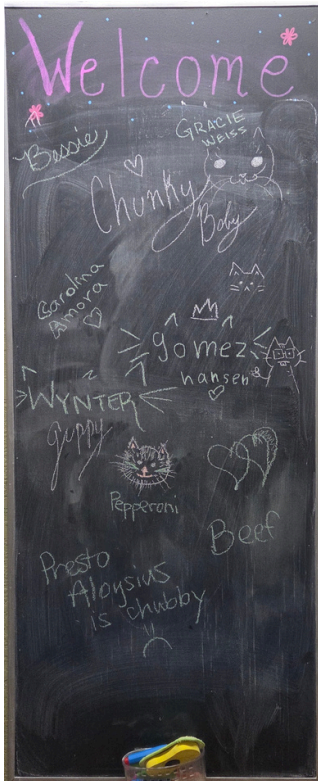 Welcome
GRACIE
WEISS
Bessie
Chunky
Boby
Carolina
Amora
gomez
hansen &
WYNTER
guppy
Pepperoni
Beef
Presto
Aloysius
is chubby